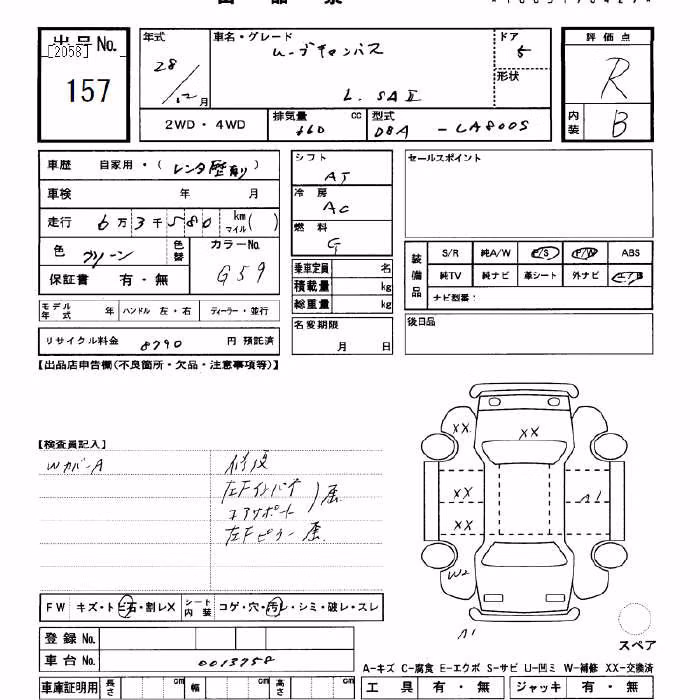 出品No. [2058] 157
年式 28/12月
車名・グレード ムーヴキャンバス L.SAⅡ
ドア 5
形状
評価点 R
内装 B
2WD・4WD
排気量 660 cc
型式 DBA-LA800S
車歴 自家用・(レンタ歴有り)
車検 年 月
走行 6万3千580 km マイル( )
色 グリーン 色替 カラーNo. G59
保証書 有・無
モデル年式 年 ハンドル 左・右 ディーラー・並行
リサイクル料金 8790 円 預託済
シフト AT
冷房 AC
燃料 G
乗車定員 名
積載量 kg
総重量 kg
名変期限 月 日
セールスポイント
装備品 S/R 純A/W P/S P/W ABS
純TV 純ナビ 革シート 外ナビ ETC
ナビ型番:
後日品
【出品店申告欄(不良箇所・欠品・注意事項等)】
【検査員記入】
Wカバ-A 修復
左Fインパネ
コアサポート 曲
左Fピラー 曲
XX XX
XX A1
XX
W2
A1
スペア
FW キズ・トビ石・割レX シート内装 コゲ・穴・汚レ・シミ・破レ・スレ
登録No.
車台No. 0013758
A-キズ C-腐食 E-エクボ S-サビ U-凹ミ W-補修 XX-交換済
車庫証明用 長さ cm 幅 cm 高さ cm
工具 有・無 ジャッキ 有・無